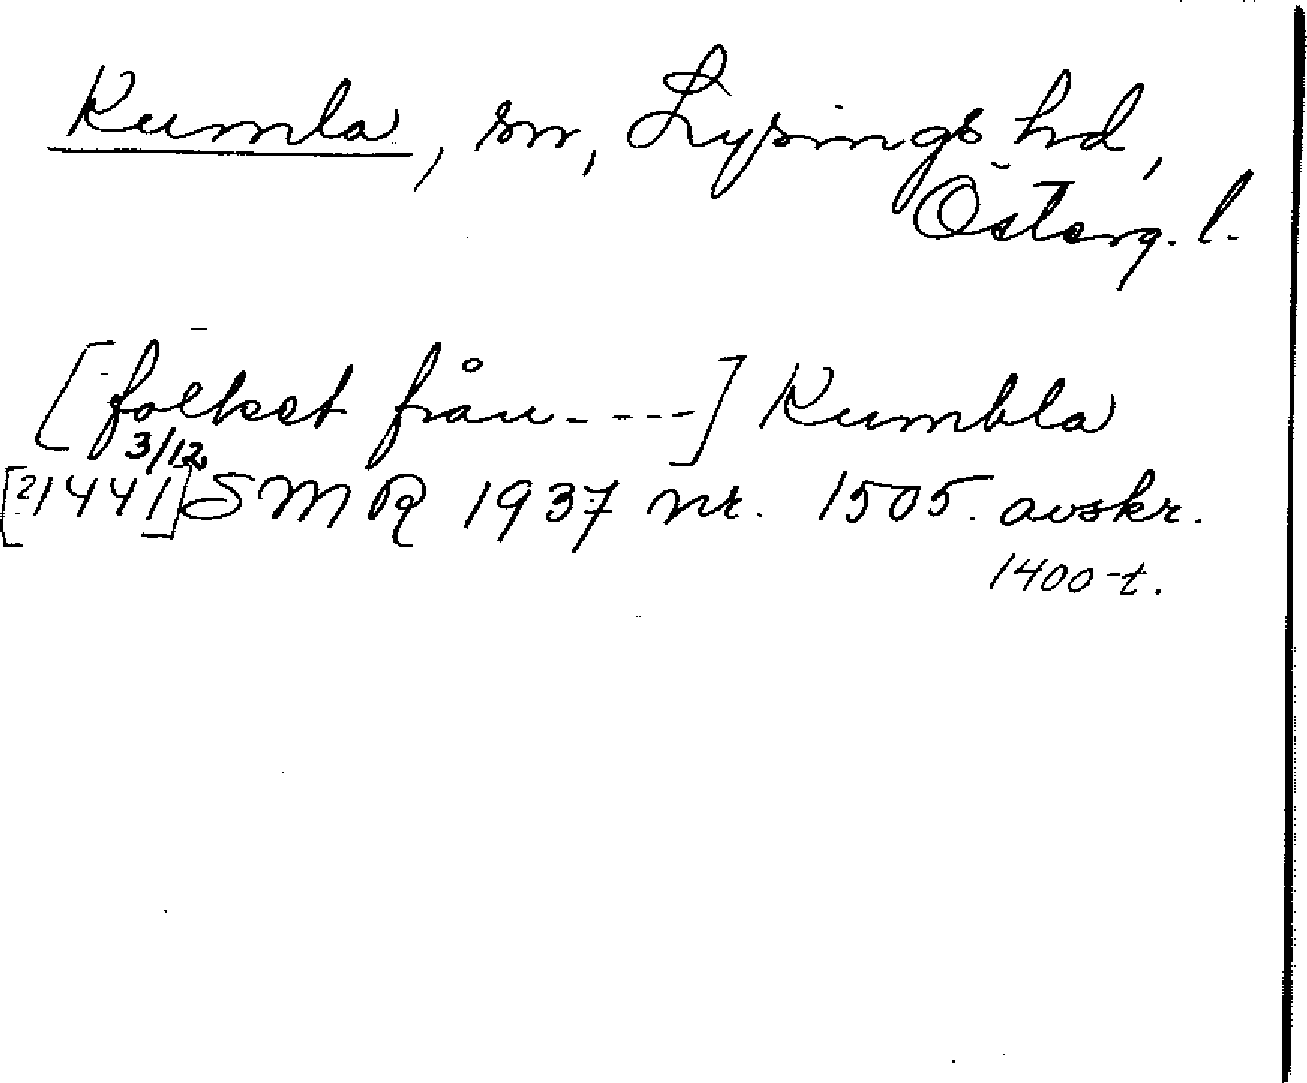 Kumla, sn, Lysings hd,
Österg. l.
[folket från ----] Kumbla
3/12
[?1441] SMR 1937 nr. 1505. avskr.
1400-t.